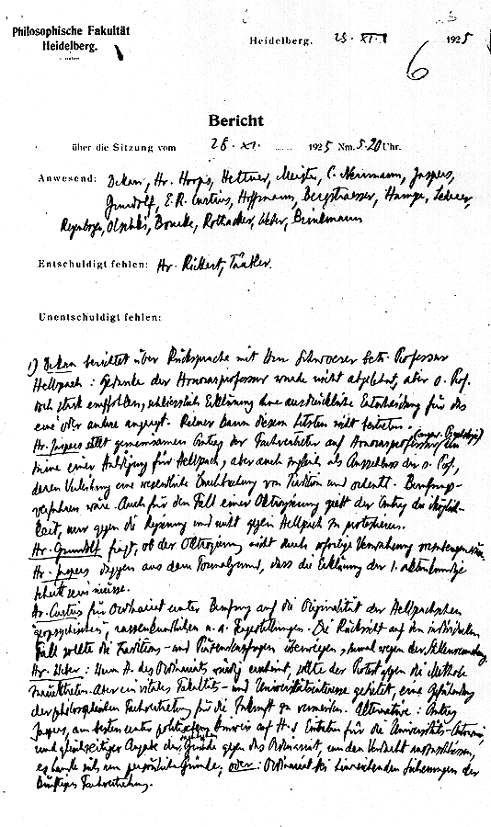 Philosophische Fakultät
Heidelberg.
Heidelberg. 1925
6
Bericht
über die Sitzung vom 28. XI. 1925 Nm. 5.20 Uhr.
Anwesend: Dekan, Hr. Hoops, Hettner, Meister, C. Neumann, Jaspers,
Gundolf, E.R. Curtius, Hoffmann, Bergstraesser, Hampe, Lederer,
Regenbogen, Olschki, Boucke, Rothacker, Weber, Brinkmann
Entschuldigt fehlen: Hr. Rickert, Täubler.
Unentschuldigt fehlen:
1) Dekan berichtet über Rücksprache mit Hrn Schwoerer betr. Professor
Hellpach: Gedanke der Honorarprofessur wurde nicht abgelehnt, aber o. Prof.
stark empfohlen, schliesslich Erklärung ohne ausdrückliche Entscheidung für das
eine oder andere angeregt.
Hr. Jaspers stellt gemeinsamen Antrag der Fachvertreter auf Honorarprofessur
im Sinne einer für Hellpach, aber auch zugleich als Ausschluss der o. Prof.,
deren Verleihung eine wesentliche von Tradition und ordentl. Berufungs-
verfahren wäre. Auch für den Fall einer Oktroyierung gebt der Antrag die Möglich-
keit, nur gegen die Regierung und nicht gegen Hellpach zu protestieren.
Hr. Gundolf fragt, ob der Oktroyierung nicht durch sofortige Verwahrung vorzubeugen wäre.
Hr. Jaspers dagegen aus dem Formalgrund, dass die Erklärung der
sein müsse.
Hr. Curtius für Ordinariat unter Berufung auf die Originalität der Hellpachschen
"geopsychischen", rassenkundlichen u. a. Fragestellungen. Die Rücksicht auf den individuellen
Fall sollte die Traditions- und überwiegen, zumal wegen der
Hr. Weber: Wenn A. des Ordinariats würdig erscheint, sollte der Protest gegen die Methode
zurücktreten. Aber ein vitales Fakultäts- und Universitätsinteresse gebietet, eine Gefährdung
der philosophischen Fachvertretung für die Zukunft zu vermeiden. Alternative: Antrag
Jaspers, am besten unter Hinweis auf H.s Eintreten für die
und gleichzeitiger Angabe der Gründe gegen das Ordinariat, um den Verdacht auszuschliessen,
es handle sich um persönliche Gründe, oder: Ordinariat bei hinreichenden Sicherungen der
künftigen Fachvertretung.